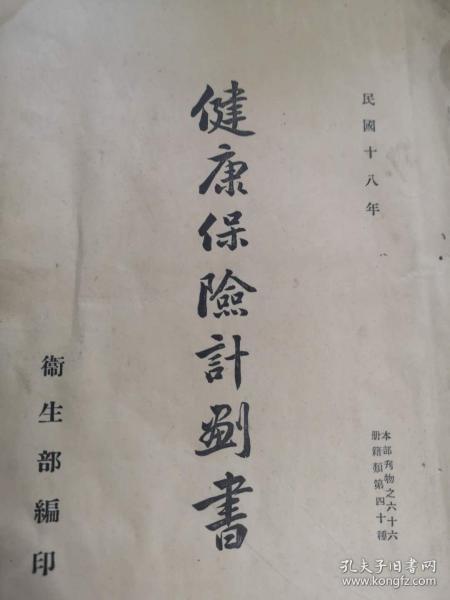 民國十八年
本部刋物之六十六
册籍類第四十種
健康保險計劃書
衞生部編印
孔夫子旧书网
www.kongfz.com